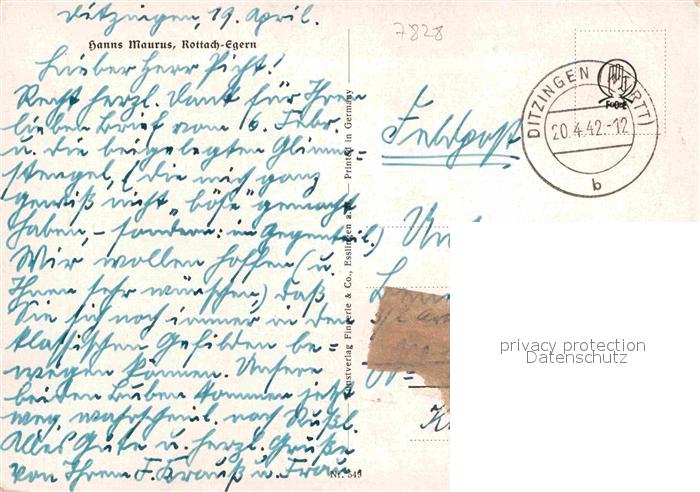 Ditzingen, 19. April.
7828
Hanns Maurus, Rottach-Egern
Lieber Herr Picht!
Recht herzl. Dank für Ihren
lieben Brief vom 6. Febr.
u. die beigelegten Glimm-
stengel, (die mich ganz
gewiß nicht "böse" gemacht
haben, - sondern: im Gegenteil!)
Wir wollen hoffen (u.
Ihnen sehr wünschen,) daß
Sie sich noch immer in den
klassischen Gefilden be-
wegen können. Unsere
beiden Buben kommen jetzt
weg, wahrscheinl. nach Rußl.
Alles Gute u. herzl. Grüße
von Ihrem F. Krauß u. Frau.
Kunstverlag Fingerle & Co., Esslingen a. N. — Printed in Germany
Nr. 549
Feldpost
DITZINGEN (WÜRTT)
20.4.42.-12
b
privacy protection
Datenschutz